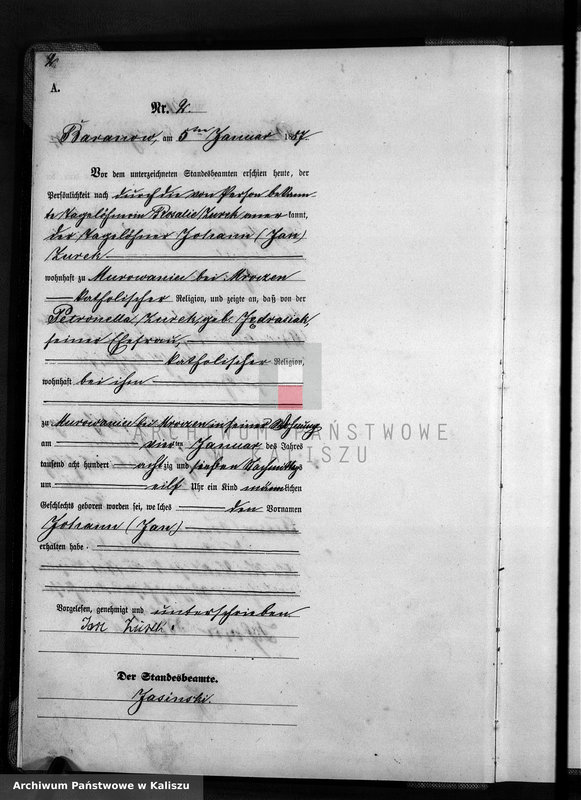 2.
A.
Nr. 2.
Baranow, am 5ten Januar 1887.
Vor dem unterzeichneten Standesbeamten erschien heute, der
Persönlichkeit nach durch die von Person bekann-
te Tagelöhnerin Rosalie Zurek aner kannt,
der Tagelöhner Johann (Jan)
Zurek
wohnhaft zu Murowaniec bei Mroczen
katholischer Religion, und zeigte an, daß von der
Petronella Zurek, geb. Jędrasiak,
seiner Ehefrau,
katholischer Religion,
wohnhaft bei ihm
zu Murowaniec bei Mroczen in seiner Wohnung
am vierten Januar des Jahres
tausend acht hundert achtzig und sieben Nachmittags
um eilf Uhr ein Kind männlichen
Geschlechts geboren worden sei, welches den Vornamen
Johann (Jan)
erhalten habe.
Vorgelesen, genehmigt und unterschrieben
Jan Zurek.
Der Standesbeamte.
Jasinski.
ARCHIWUM PAŃSTWOWE
W KALISZU
Archiwum Państwowe w Kaliszu